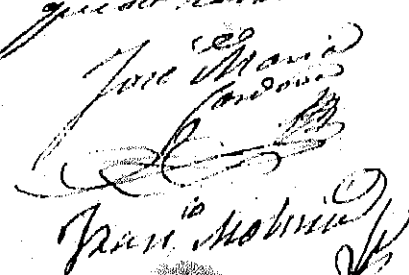 José Maria
Cardona
Fran.co Molina